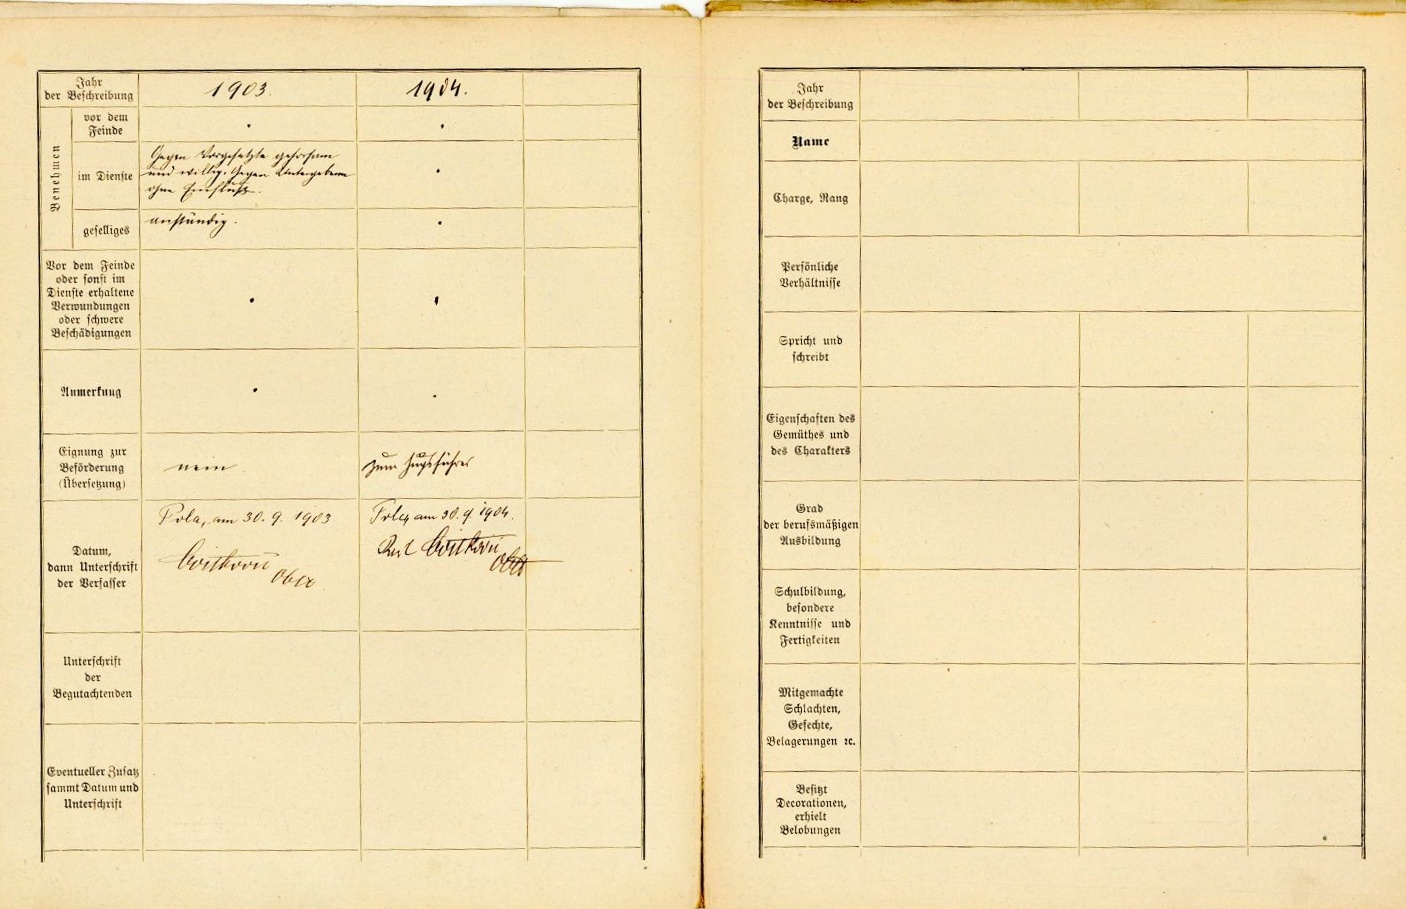 Jahr
der Beschreibung
1903.
1904.
Benehmen
vor dem
Feinde
im Dienste
Gegen Vorgesetzte gehorsam
und willig. Gegen Untergebene
ohne Einfluß.
geselliges
anständig.
Vor dem Feinde
oder sonst im
Dienste erhaltene
Verwundungen
oder schwere
Beschädigungen
Anmerkung
Eignung zur
Beförderung
(Übersetzung)
nein
zum Zugsführer
Datum,
dann Unterschrift
der Verfasser
Pola, am 30. 9. 1903
Pola, am 30. 9. 1904.
Unterschrift
der
Begutachtenden
Eventueller Zusatz
sammt Datum und
Unterschrift
Jahr
der Beschreibung
Name
Charge, Rang
Persönliche
Verhältnisse
Spricht und
schreibt
Eigenschaften des
Gemüthes und
des Charakters
Grad
der berufsmäßigen
Ausbildung
Schulbildung,
besondere
Kenntnisse und
Fertigkeiten
Mitgemachte
Schlachten,
Gefechte,
Belagerungen ꝛc.
Besitzt
Decorationen,
erhielt
Belobungen